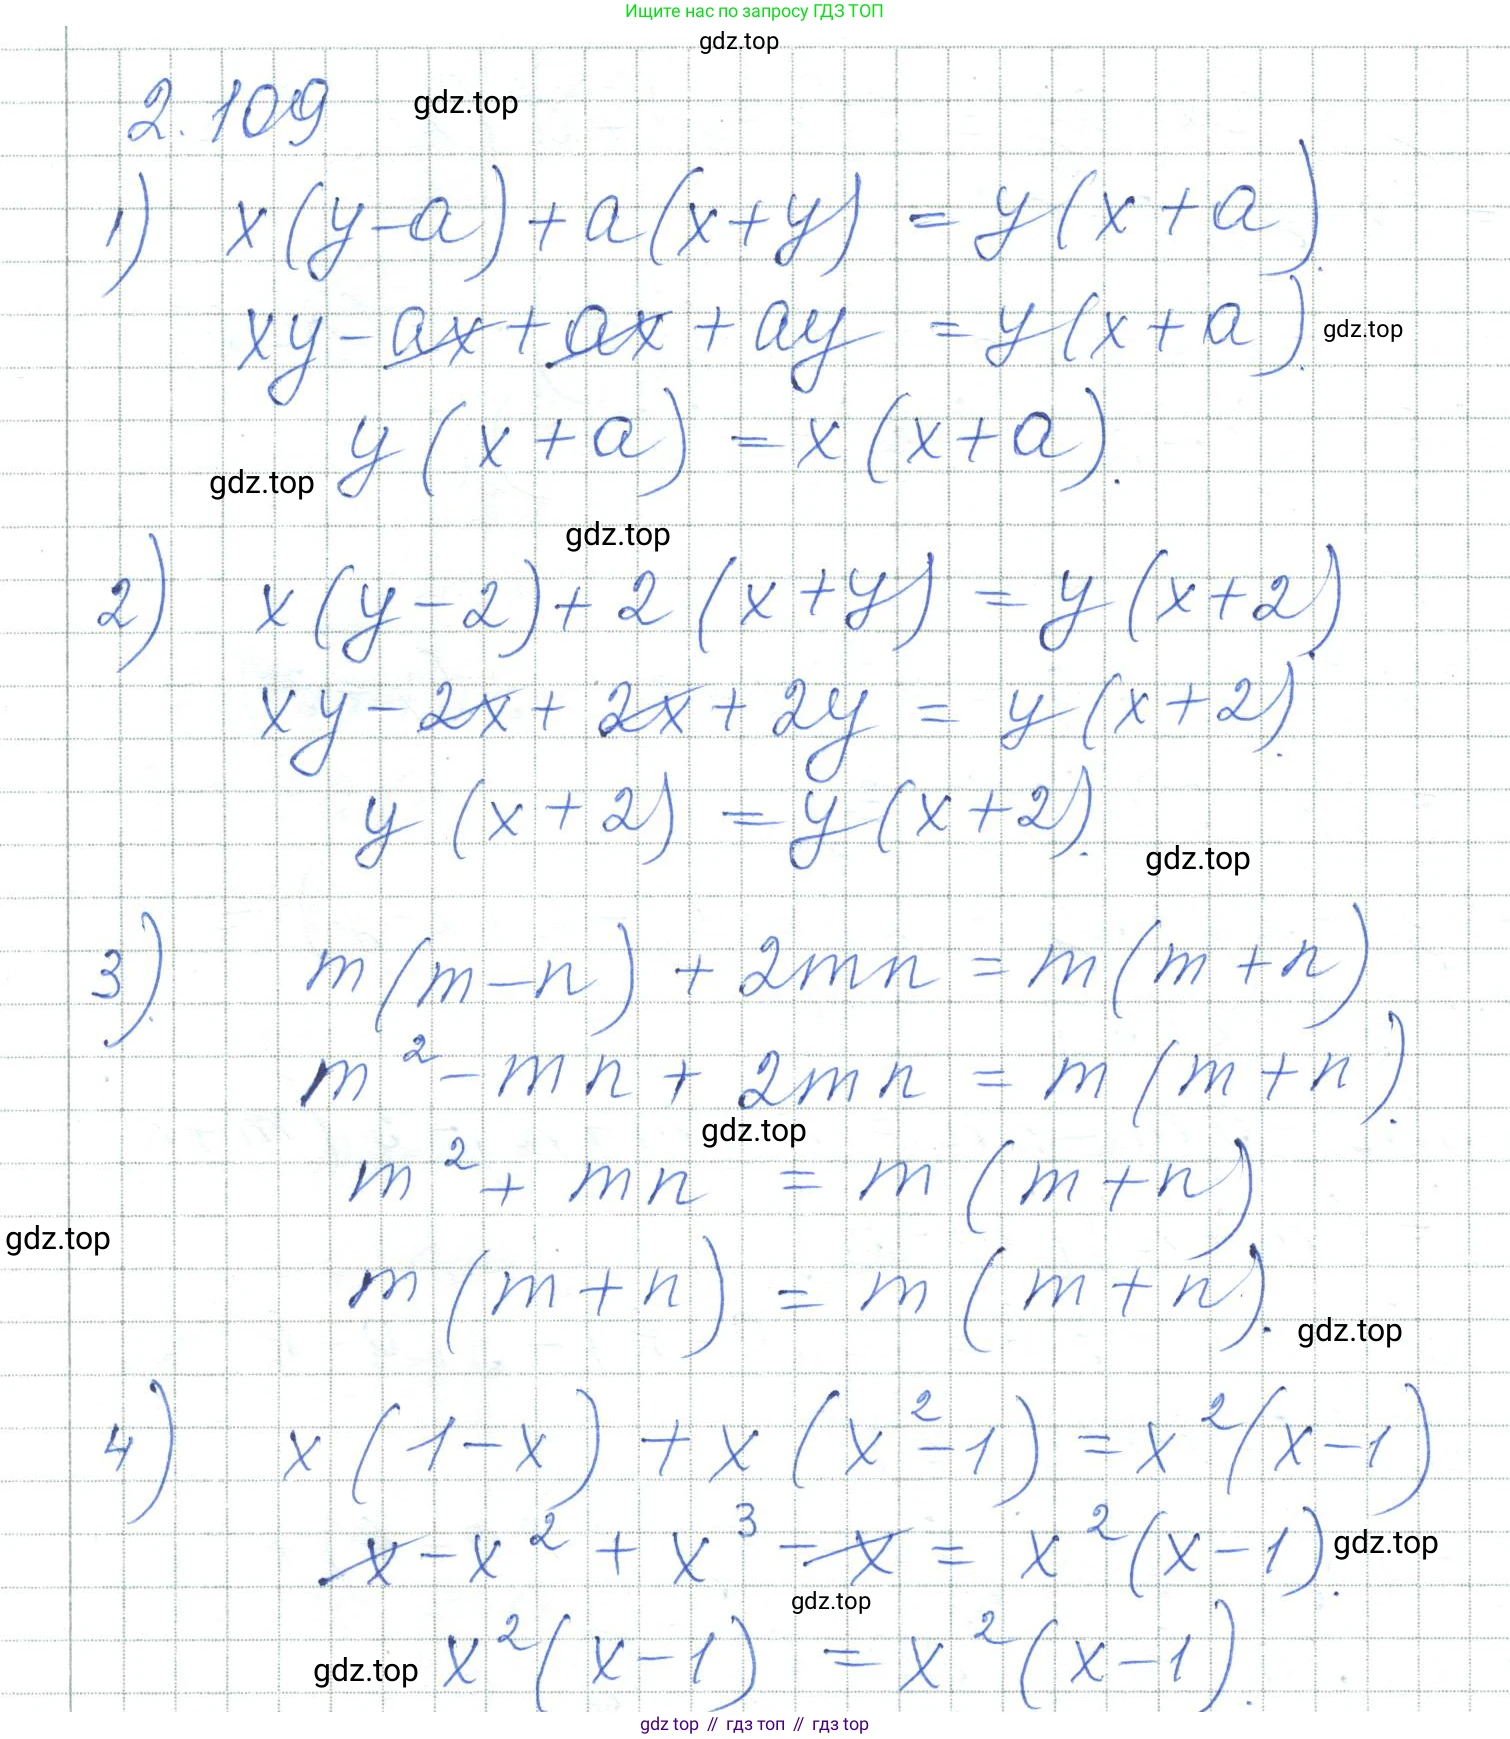 Ищите нас по запросу ГДЗ ТОП
gdz.top
2.109 gdz.top
1) x(y-a)+a(x+y) = y(x+a).
xy-ax+ax+ay = y(x+a). gdz.top
y(x+a) = x(x+a).
gdz.top
gdz.top
2) x(y-2)+2(x+y) = y(x+2).
xy-2x+2x+2y = y(x+2).
y(x+2) = y(x+2).
gdz.top
3) m(m-n)+2mn = m(m+n)
m²-mn+2mn = m(m+n).
gdz.top
m²+mn = m(m+n)
gdz.top
m(m+n) = m(m+n).
gdz.top
4) x(1-x)+x(x²-1) = x²(x-1)
x-x²+x³-x = x²(x-1). gdz.top
gdz.top
gdz.top x²(x-1) = x²(x-1).
gdz top // гдз топ // гдз top